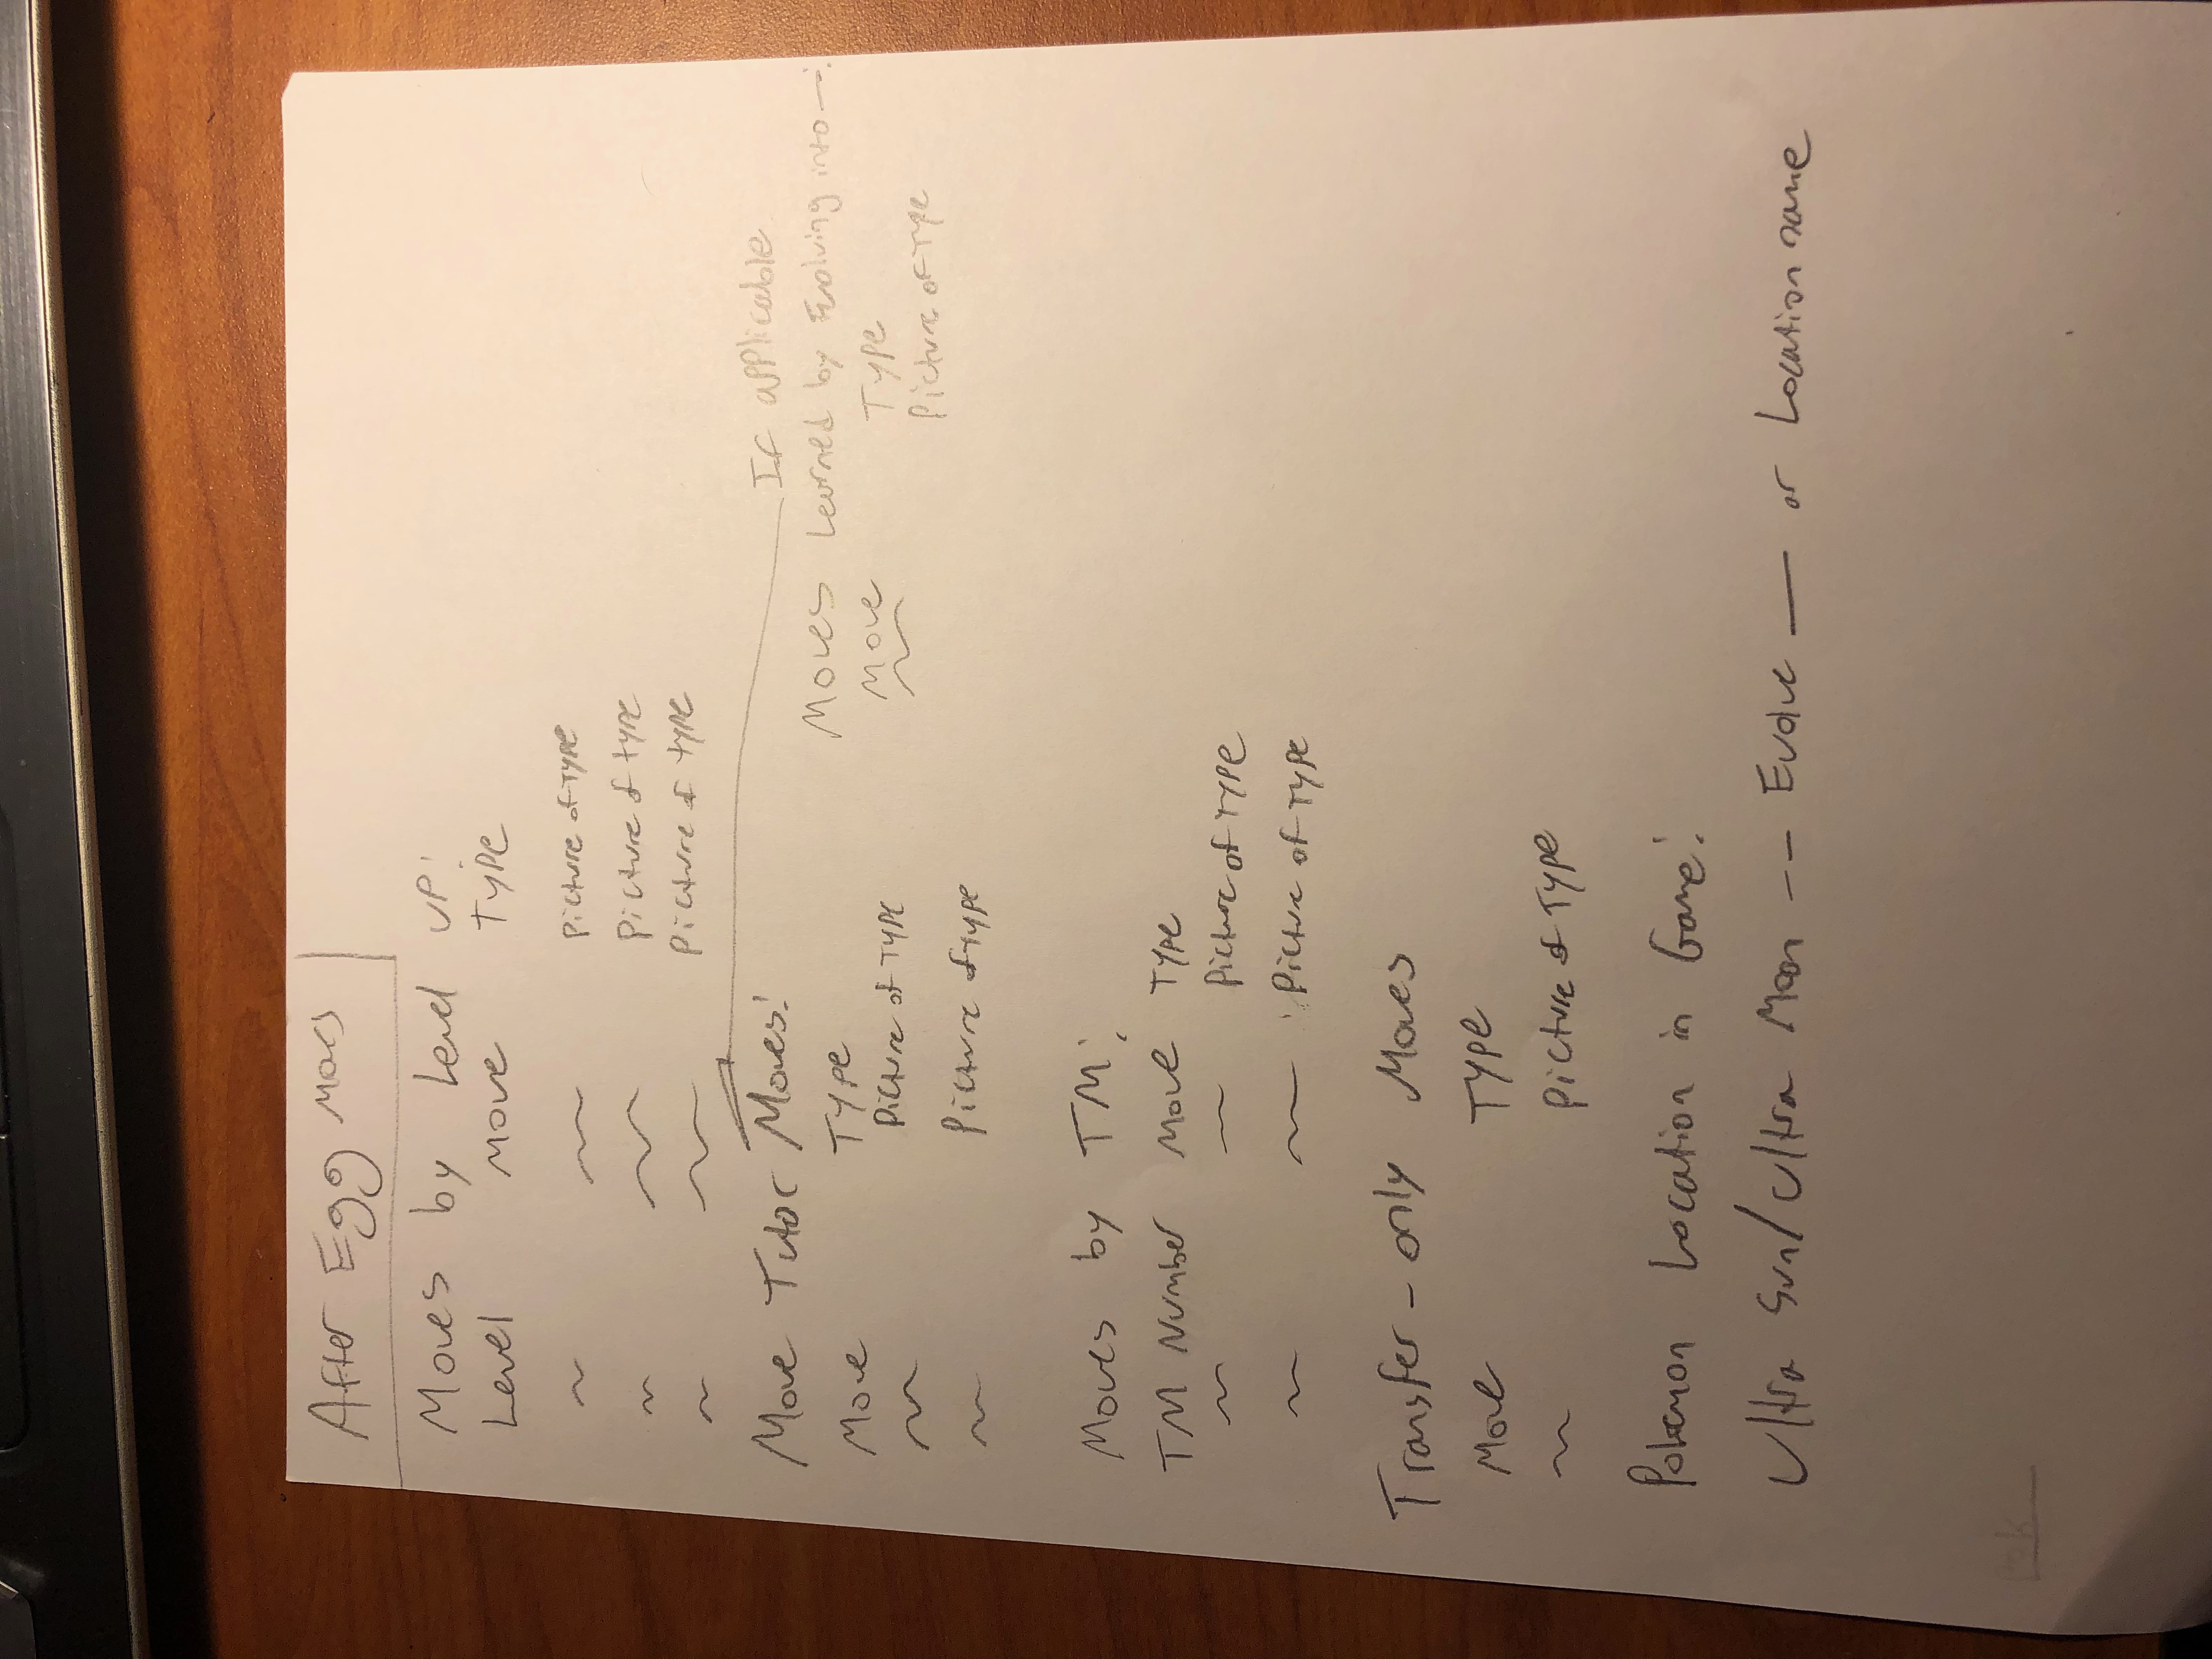 After Egg Moves
Moves by Level up:
Level Move Type
~ ~ Picture of Type
~ ~ Picture of type
~ ~ Picture of type
If applicable
Moves Learned by Evolving into —:
Move Type
~ Picture of Type
Move Tutor Moves:
Move Type
~ Picture of Type
~ Picture of type
Moves by TM:
TM Number Move Type
~ — Picture of Type
~ ~ Picture of Type
Transfer-only Moves
Move Type
~ Picture of Type
Pokemon Location in Game:
Ultra Sun/Ultra Moon -- Evolve — or Location name
Pok